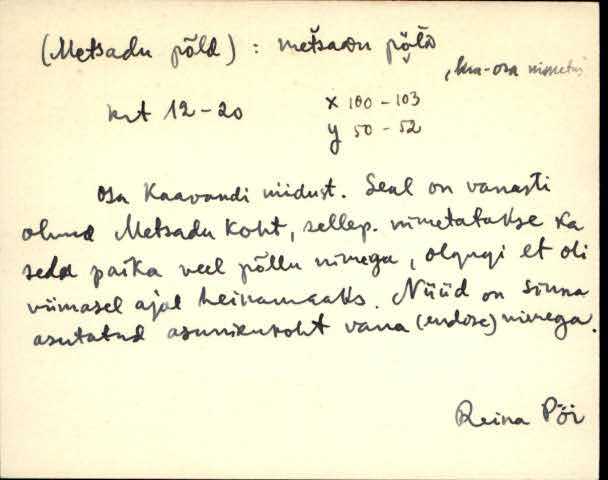 (Metsadu põld) : metsaᴅu põlᴅ
, kua-osa nimetus
krt 12-20 x 100-103
y 50-52
Osa Kaavandi niidust. Seal on vanasti
olnud Metsadu koht, sellep. nimetatakse ka
seda paika veel põllu nimega, olgugi et oli
viimasel ajal heinamaaks. Nüüd on sinna
asutatud asunikukoht vana (endise) nimega.
Reina Pöi